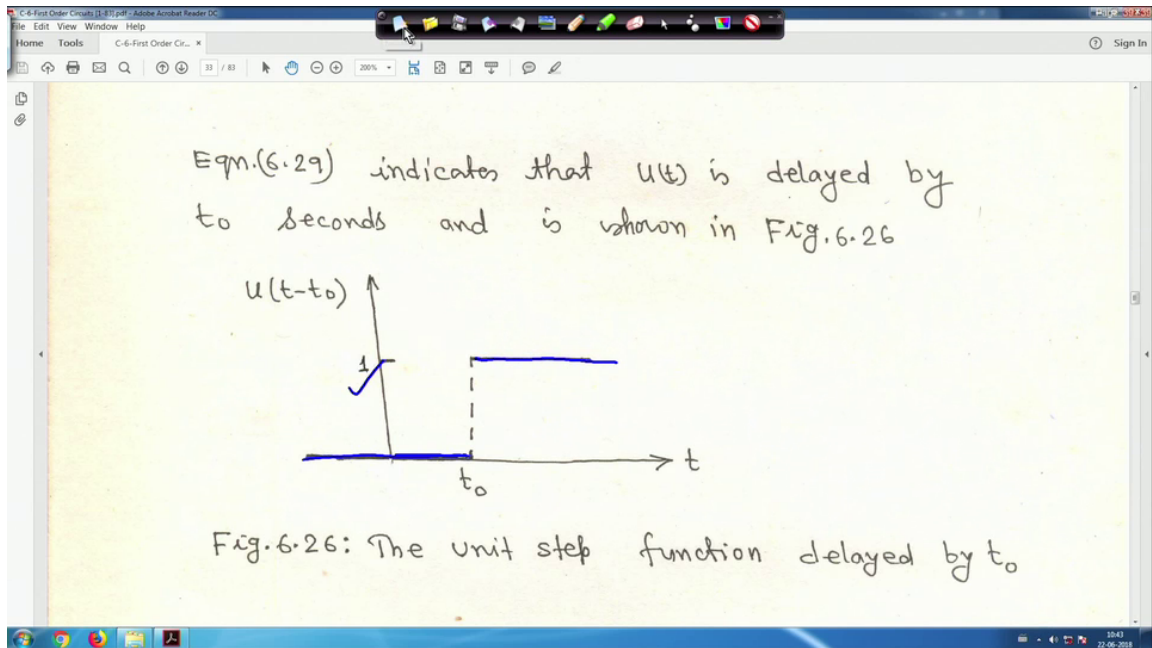 C-6-First Order Circuits [1-83].pdf - Adobe Acrobat Reader DC
File Edit View Window Help
Home Tools C-6-First Order Cir... × Sign In
33 / 83 200%
Eqn.(6.29) indicates that u(t) is delayed by
to seconds and is shown in Fig.6.26
u(t-to)
1
t
to
Fig.6.26: The unit step function delayed by to
10:43
22-06-2018